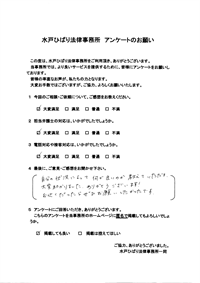 水戸ひばり法律事務所 アンケートのお願い
この度は、水戸ひばり法律事務所をご利用頂き、ありがとうございます。
当事務所では、より良いサービスを提供するために、皆様にアンケートをお願いしております。
皆様の率直なお声が、私たちの力となります。
大変お手数ではございますが、ご協力、よろしくお願いいたします。
1 今回のご相談・ご依頼について、ご感想をお教えください。
☑ 大変満足 □ 満足 □ 普通 □ 不満
2 担当弁護士の対応は、いかがでしたでしょうか。
☑ 大変満足 □ 満足 □ 普通 □ 不満
3 電話対応や接客対応は、いかがでしたでしょうか。
☑ 大変満足 □ 満足 □ 普通 □ 不満
4 最後に、ご意見・ご感想をお聞かせ下さい。
自分の状況において 何が良いのか 教えていただき
大変助かりました。ありがとうございます!
5 アンケートにご回答いただき、ありがとうございます。
こちらのアンケートを当事務所のホームページに匿名で掲載してもよろしいでしょうか。
☑ 掲載しても良い □ 掲載は控えてほしい
ご協力、ありがとうございました。
水戸ひばり法律事務所一同